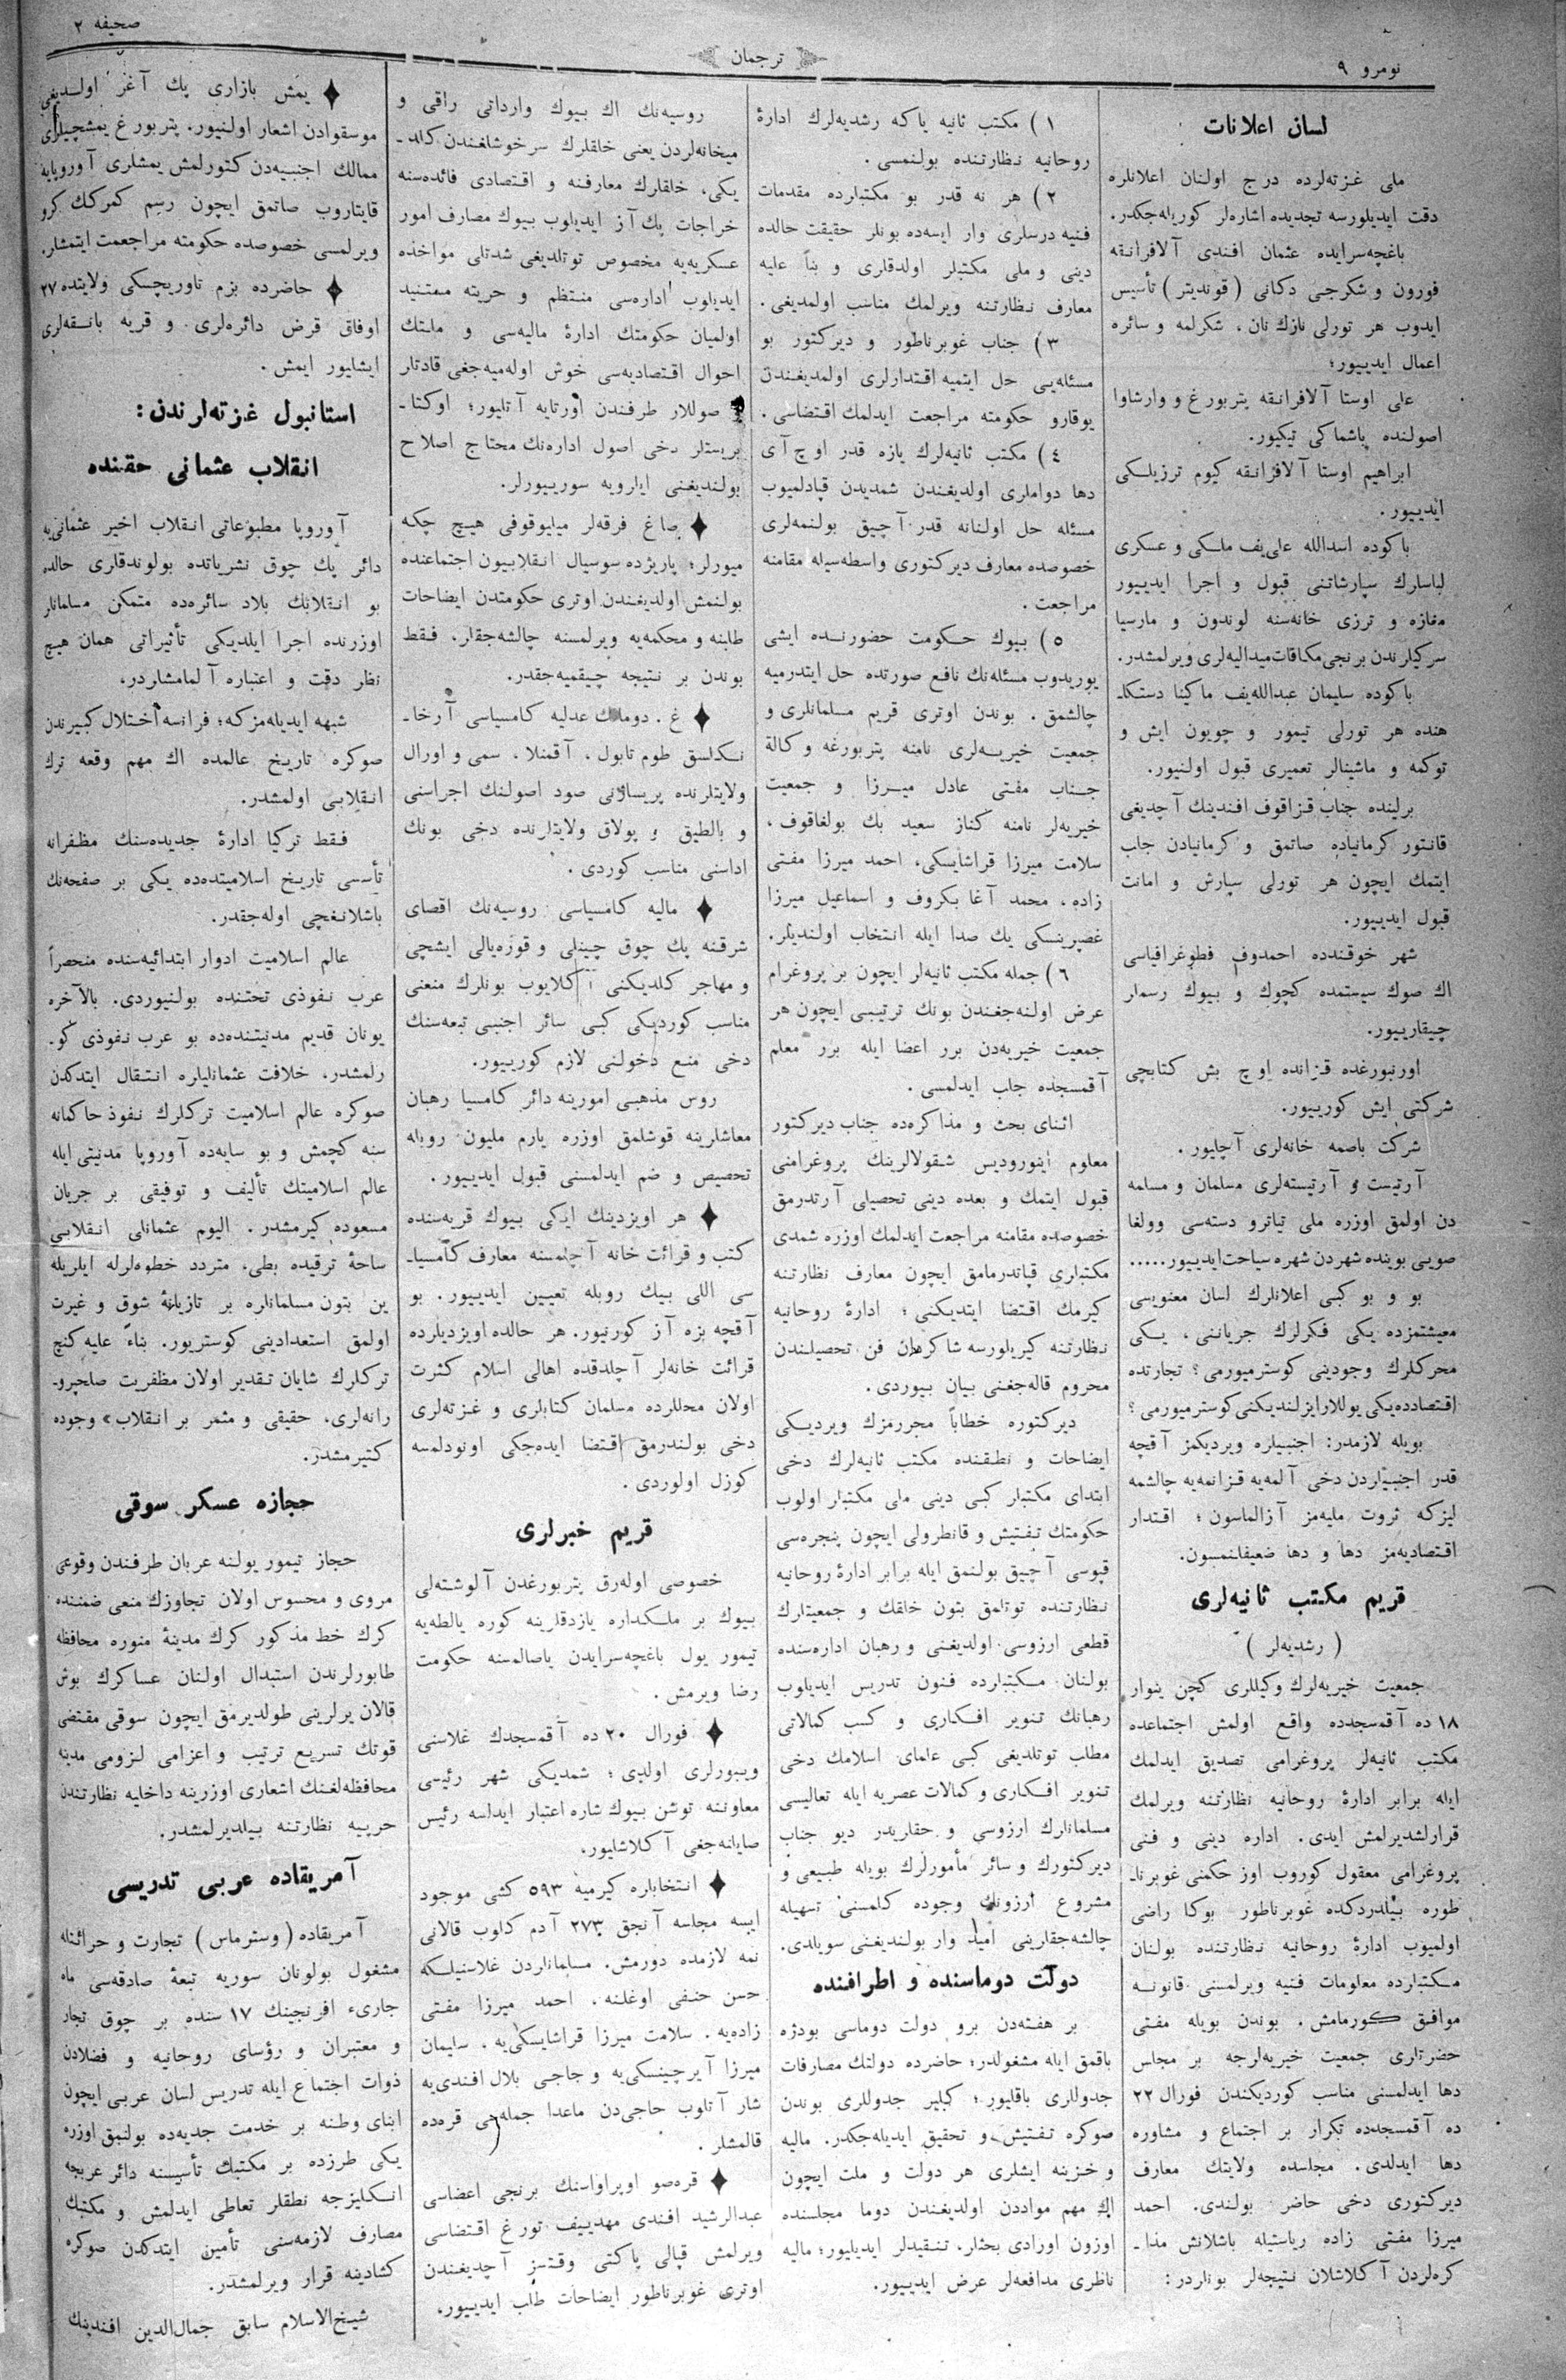 نومرو ٩
ترجمان
صحیفه ٢
لسان اعلانات
ملی غزته‌لرده درج اولنان اعلانلره
دقت ایدیلورسه تجدیده اشاره‌لر کوریله‌جکدر.
باغچه‌سرایده عثمان افندی آلافرانقه
فورون و شکرجی دکانی (قوندیتر) تأسیس
ایدوب هر تورلی نازك نان، شکرلمه و سائره
اعمال ایدییور؛
علی اوستا آلافرانقه پتربورغ و وارشاوا
اصولنده پاشماکی تیکیور.
ابراهیم اوستا آلافرانقه کیوم ترزیلکی
ایدییور.
باکوده اسدالله علی‌یف ملکی و عسکری
لباسلرك سپارشاتنی قبول و اجرا ایدییور
مغازه و ترزی خانه‌سنه لوندون و مارسیا
سرکیلرندن برنجی مکافات میدالیه‌لری ویرلمشدر.
باکوده سلیمان عبدالله‌یف ماکینا دستکا-
هنده هر تورلی تیمور و چویون ایش و
توکمه و ماشینالر تعمیری قبول اولنیور.
برلینده جناب قزاقوف افندینك آچدیغی
قانتور کرمانیاده صاتمق و کرمانیادن جلب
ایتمك ایچون هر تورلی سپارش و امانت
قبول ایدییور.
شهر خوقندده احمدوف فطوغرافیاسی
اك صوك سیستمده کچوك و بیوك رسملر
چیقارییور.
اورنبورغده قزانده اوچ بش کتابچی
شرکتی ایش کورییور.
شرکت باصمه خانه‌لری آچلیور.
آرتیست و آرتیسته‌لری مسلمان و مسلمه
دن اولمق اوزره ملی تیاترو دسته‌سی وولغا
صویی بوینده شهردن شهره سیاحت ایدییور.....
بو و بو کبی اعلانلرك لسان معنویسی
معیشتمزده یکی فکرلرك جریاننی، یکی
محرکلرك وجودینی کوسترمیورمی؟ تجارتده
اقتصادده یکی یوللار ایزلندیکنی کوسترمیورمی؟
بویله لازمدر: اجنبیلره ویردیکمز آقچه
قدر اجنبیلردن دخی آلمه‌یه قزانمه‌یه چالشمه
لیزکه ثروت ملیه‌مز آزالماسون؛ اقتدار
اقتصادیه‌مز دها و دها ضعیفلنمسون.
قریم مکتب ثانیه‌لری
(رشدیه‌لر)
جمعیت خیریه‌لرك وکیللری کچن ینوار
١٨ ده آقمسجدده واقع اولمش اجتماعده
مکتب ثانیه‌لر پروغرامی تصدیق ایدلمك
ایله برابر ادارهٔ روحانیه نظارتنه ویرلمك
قرارلشدیرلمش ایدی. اداره دینی و فنی
پروغرامی معقول کوروب اوز حکمنی غوبرنا-
طوره بیلدردکده غوبرناطور بوکا راضی
اولمیوب ادارهٔ روحانیه نظارتنده بولنان
مکتبلرده معلومات فنیه ویرلمسنی قانونه
موافق کورمامش. بوندن بویله مفتی
حضرتلری جمعیت خیریه‌لرجه بر مجلس
دها ایدلمسنی مناسب کوردیکندن فورال ٢٢
ده آقمسجدده تکرار بر اجتماع و مشاوره
دها ایدلدی. مجلسده ولایتك معارف
دیرکتوری دخی حاضر بولندی. احمد
میرزا مفتی زاده ریاستیله باشلانش مذا-
کره‌لردن آکلاشلان نتیجه‌لر بونلردر:
١) مکتب ثانیه یاکه رشدیه‌لرك ادارهٔ
روحانیه نظارتنده بولنمسی.
٢) هر نه قدر بو مکتبلرده مقدمات
فنیه درسلری وار ایسه‌ده بونلر حقیقت حالده
دینی و ملی مکتبلر اولدقلری و بناً علیه
معارف نظارتنه ویرلمك مناسب اولمدیغی.
٣) جناب غوبرناطور و دیرکتور بو
مسئله‌یی حل ایتمیه اقتدارلری اولمدیغندن
یوقارو حکومته مراجعت ایدلمك اقتضاسی.
٤) مکتب ثانیه‌لرك یازه قدر اوچ آی
دها دواملری اولدیغندن شمدیدن قپادلمیوب
مسئله حل اولنانه قدر آچیق بولنمه‌لری
خصوصده معارف دیرکتوری واسطه‌سیله مقامنه
مراجعت.
٥) بیوك حکومت حضورنده ایشی
یوریدوب مسئله‌نك نافع صورتده حل ایتدرمیه
چالشمق. بوندن اوتری قریم مسلمانلری و
جمعیت خیریه‌لری نامنه پتربورغه وکالة
جناب مفتی عادل میرزا و جمعیت
خیریه‌لر نامنه کناز سعید بك بولغاقوف،
سلامت میرزا قراشایسکی، احمد میرزا مفتی
زاده، محمد آغا بکروف و اسماعیل میرزا
غصپرینسکی یك صدا ایله انتخاب اولندیلر.
٦) جمله مکتب ثانیه‌لر ایچون بر پروغرام
عرض اولنه‌جغندن بونك ترتیبی ایچون هر
جمعیت خیریه‌دن برر اعضا ایله برر معلم
آقمسجده جلب ایدلمسی.
اثنای بحث و مذاکره‌ده جناب دیرکتور
معلوم اینورودیس شقولالرینك پروغرامنی
قبول ایتمك و بعده دینی تحصیلی آرتدرمق
خصوصده مقامنه مراجعت ایدلمك اوزره شمدی
مکتبلری قپاتدرمامق ایچون معارف نظارتنه
کیرمك اقتضا ایتدیکنی؛ ادارهٔ روحانیه
نظارتنه کیریلورسه شاکردان فن تحصیلندن
محروم قاله‌جغنی بیان بیوردی.
دیرکتوره خطاباً محررمزك ویردیکی
ایضاحات و نطقنده مکتب ثانیه‌لرك دخی
ابتدای مکتبلر کبی دینی ملی مکتبلر اولوب
حکومتك تفتیش و قانطرولی ایچون پنجره‌سی
قپوسی آچیق بولنمق ایله برابر ادارهٔ روحانیه
نظارتنده توتلمق بتون خلقك و جمعیتلرك
قطعی ارزوسی اولدیغنی و رهبان اداره‌سنده
بولنان مکتبلرده فنون تدریس ایدیلوب
رهبانك تنویر افکاری و کسب کمالاتی
مطلب توتلدیغی کبی علمای اسلامك دخی
تنویر افکاری و کمالات عصریه ایله تعالیسی
مسلمانلرك ارزوسی و حقلریدر دیو جناب
دیرکتورك و سائر مأمورلرك بویله طبیعی و
مشروع ارزونك وجوده کلمسنی تسهیله
چالشه‌جقلرینی امید وار بولندیغنی سویلدی.
دولت دوماسنده و اطرافنده
بر هفته‌دن برو دولت دوماسی بودژه
باقمق ایله مشغولدر؛ حاضرده دولتك مصارفات
جدوللری باقلیور؛ کیلیر جدوللری بوندن
صوکره تفتیش و تحقیق ایدیله‌جکدر. مالیه
و خزینه ایشلری هر دولت و ملت ایچون
اك مهم مواددن اولدیغندن دوما مجلسنده
اوزون اورادی بحثلر، تنقیدلر ایدیلیور؛ مالیه
ناظری مدافعه‌لر عرض ایدییور.
روسیه‌نك اك بیوك وارداتی راقی و
میخانه‌لردن یعنی خلقلرك سرخوشلغندن کلد-
یکی، خلقلرك معارفنه و اقتصادی فائده‌سنه
خراجات پك آز ایدیلوب بیوك مصارف امور
عسکریه‌یه مخصوص توتلدیغی شدتلی مواخذه
ایدیلوب اداره‌سی منتظم و حریته مستنید
اولمیان حکومتك ادارهٔ مالیه‌سی و ملتك
احوال اقتصادیه‌سی خوش اوله‌میه‌جغی قادتلر
صوللار طرفندن اورتایه آتلیور؛ اوکتا-
بریستلر دخی اصول اداره‌نك محتاج اصلاح
بولندیغنی ایلرویه سورییورلر.
صاغ فرقه‌لر میلیوقوفی هیچ چکه
میورلر؛ پاریژده سوسیال انقلابیون اجتماعنده
بولنمش اولدیغندن اوتری حکومتدن ایضاحات
طلبنه و محکمه‌یه ویرلمسنه چالشه‌جقلر. فقط
بوندن بر نتیجه چیقمیه‌جقدر.
غ. دومانك عدلیه کامسیاسی آرخا-
نکلسق طوم تابول، آقمنلا، سمی و اورال
ولایتلرنده پریساژنی صود اصولنك اجراسنی
و بالطیق و پولاق ولایتلرنده دخی بونك
اداسنی مناسب کوردی.
مالیه کامسیاسی روسیه‌نك اقصای
شرقنه پك چوق چینلی و قوره‌یالی ایشچی
و مهاجر کلدیکنی آکلایوب بونلرك منعنی
مناسب کوردیکی کبی سائر اجنبی تبعه‌سنك
دخی منع دخولنی لازم کورییور.
روس مذهبی امورینه دائر کامسیا رهبان
معاشلرینه قوشلمق اوزره یارم ملیون روبله
تحصیص و ضم ایدلمسنی قبول ایدییور.
هر اویزدینك ایکی بیوك قریه‌سنده
کتب و قرائت خانه آچلمسنه معارف کامسیا-
سی اللی بیك روبله تعیین ایدییور. بو
آقچه بزه آز کورنیور. هر حالده اویزدیلرده
قرائت خانه‌لر آچلدقده اهالی اسلام کثرت
اولان محللرده مسلمان کتابلری و غزته‌لری
دخی بولندرمق اقتضا ایده‌جکی اونودلمسه
کوزل اولوردی.
قریم خبرلری
خصوصی اوله‌رق پتربورغدن آلوشته‌لی
بیوك بر ملکداره یازدقلرینه کوره یالطه‌یه
تیمور یول باغچه‌سرایدن یاصالمسنه حکومت
رضا ویرمش.
فورال ٢٠ ده آقمسجدك غلاسنی
ویبورلری اولدی؛ شمدیکی شهر رئیسی
معاوننه توشن بیوك شاره اعتبار ایدلسه رئیس
صایلنه‌جغی آکلاشلیور.
انتخابلره کیرمیه ٥٩٣ کشی موجود
ایسه مجلسه آنجق ٢٧٣ آدم کلوب قالانی
نمه لازمده دورمش. مسلمانلردن غلاسنیلکه
حسن حنفی اوغلنه، احمد میرزا مفتی
زاده‌یه. سلامت میرزا قراشایسکی‌یه، سلیمان
میرزا آیرچینسکی‌یه و حاجی بلال افندی‌یه
شار آتلوب حاجی‌دن ماعدا جمله‌سی قره‌ده
قالمشلر.
قره‌صو اوپراواسنك برنجی اعضاسی
عبدالرشید افندی مهدییف تورغ اقتضاسی
ویرلمش قپالی پاکتی وقتسز آچدیغندن
اوتری غوبرناطور ایضاحات طلب ایدییور.
یمش بازاری پك آغر اولدیغی
موسقوادن اشعار اولنیور. پتربورغ یمشچیلری
ممالك اجنبیه‌دن کتورلمش یمشلری آوروپایه
قایتاروب صاتمق ایچون رسم کمرکك کرو
ویرلمسی خصوصده حکومته مراجعت ایتمشلر.
حاضرده بزم تاوریچسکی ولایتده ٢٧
اوفاق قرض دائره‌لری و قریه بانقه‌لری
ایشلیور ایمش.
استانبول غزته‌لرندن:
انقلاب عثمانی حقنده
آوروپا مطبوعاتی انقلاب اخیر عثمانی‌یه
دائر پك چوق نشریاتده بولوندقلری حالده
بو انقلابك بلاد سائره‌ده متمکن مسلمانلر
اوزرنده اجرا ایلدیکی تأثیراتی همان هیچ
نظر دقت و اعتباره آلمامشلردر.
شبهه ایدیله‌مزکه؛ فرانسه اختلال کبیرندن
صوکره تاریخ عالمده اك مهم وقعه ترك
انقلابی اولمشدر.
فقط ترکیا ادارهٔ جدیده‌سنك مظفرانه
تأسسی تاریخ اسلامیتده‌ده یکی بر صفحه‌نك
باشلانغچی اوله‌جقدر.
عالم اسلامیت ادوار ابتدائیه‌سنده منحصراً
عرب نفوذی تحتنده بولنیوردی. بالآخره
یونان قدیم مدنیتنده‌ده بو عرب نفوذی کو-
رلمشدر. خلافت عثمانلیلره انتقال ایتدکدن
صوکره عالم اسلامیت ترکلرك نفوذ حاکمانه
سنه کچمش و بو سایه‌ده آوروپا مدنیتی ایله
عالم اسلامیتك تألیف و توفیقی بر جریان
مسعوده کیرمشدر. الیوم عثمانلی انقلابی
ساحهٔ ترقیده بطی، متردد خطوه‌لرله ایلریله
ین بتون مسلمانلره بر تازیانهٔ شوق و غیرت
اولمق استعدادینی کوستریور. بناءً علیه کنج
ترکلرك شایان تقدیر اولان مظفریت صلحپرو-
رانه‌لری، حقیقی و مثمر بر انقلاب» وجوده
کتیرمشدر.
حجازه عسکر سوقی
حجاز تیمور یولنه عربان طرفندن وقوعی
مروی و محسوس اولان تجاوزك منعی ضمننده
کرك خط مذکور کرك مدینهٔ منوره محافظه
طابورلرندن استبدال اولنان عساکرك بوش
قالان یرلرینی طولدیرمق ایچون سوقی مقتضی
قوتك تسریع ترتیب و اعزامی لزومی مدینه
محافظه‌لغنك اشعاری اوزرینه داخلیه نظارتندن
حربیه نظارتنه بیلدیرلمشدر.
آمریقاده عربی تدریسی
آمریقاده (وسترماس) تجارت و حراثتله
مشغول بولونان سوریه تبعهٔ صادقه‌سی ماه
جارىء افرنجینك ١٧ سنده بر چوق تجار
و معتبران و رؤسای روحانیه و فضلادن
ذوات اجتماع ایله تدریس لسان عربی ایچون
ابنای وطنه بر خدمت جدیه‌ده بولنمق اوزره
یکی طرزده بر مکتبك تأسیسنه دائر عربجه
انکلیزجه نطقلر تعاطی ایدلمش و مکتبك
مصارف لازمه‌سنی تأمین ایتدکدن صوکره
کشادینه قرار ویرلمشدر.
شیخ‌الاسلام سابق جمال‌الدین افندینك